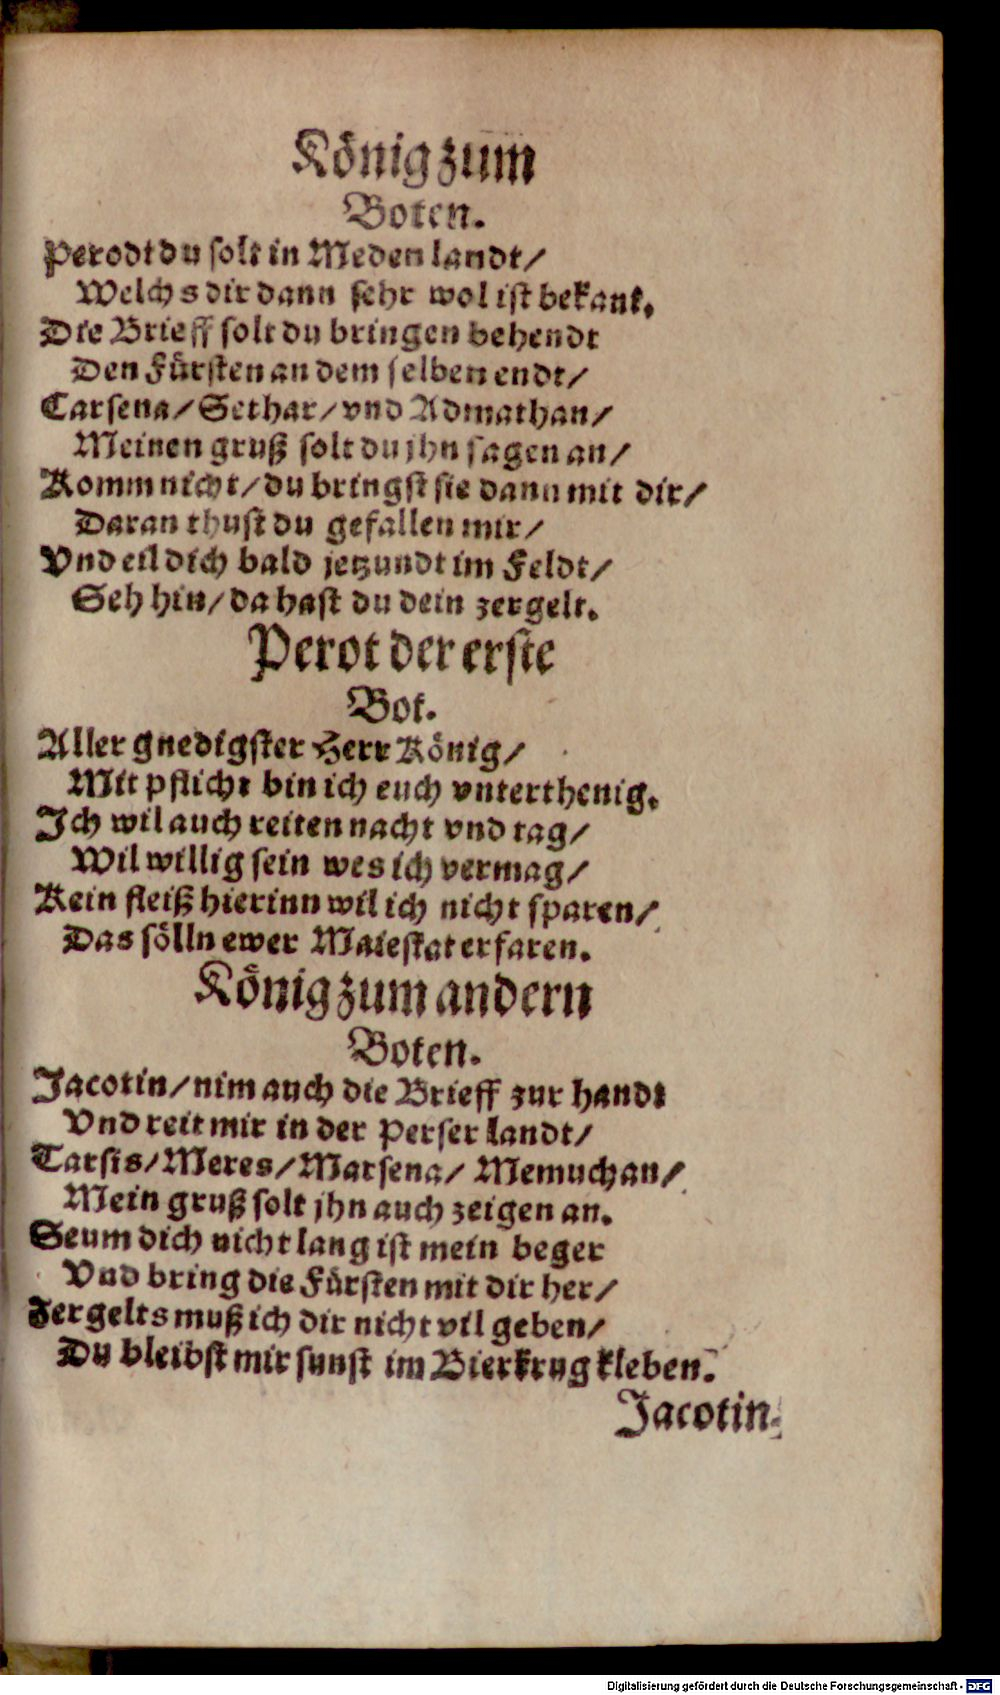 König zum
Boten.
Perodt du solt in Meden landt/
Welchs dir dann sehr wol ist bekant.
Die Brieff solt du bringen behendt
Den Fürsten an dem selben endt/
Carsena/ Sethar/ vnd Admathan/
Meinen gruß solt du jhn sagen an/
Komm nicht/ du bringst sie dann mit dir/
Daran thust du gefallen mir/
Vnd eil dich bald jetzundt im Feldt/
Seh hin/ da hast du dein zergelt.
Perot der erste
Bot.
Aller gnedigster Herr König/
Mit pflicht bin ich euch vnterthenig.
Ich wil auch reiten nacht vnd tag/
Wil willig sein wes ich vermag/
Kein fleiß hierinn wil ich nicht sparen/
Das sölln ewer Maiestat erfaren.
König zum andern
Boten.
Jacotin/ nim auch die Brieff zur handt
Vnd reit mir in der Perser landt/
Tarsis/ Meres/ Marsena/ Memuchan/
Mein gruß solt jhn auch zeigen an.
Seum dich nicht lang ist mein beger
Vnd bring die Fürsten mit dir her/
Zergelts muß ich dir nicht vil geben/
Du bleibst mir sunst im Bierkrug kleben.
Jacotin.
Digitalisierung gefördert durch die Deutsche Forschungsgemeinschaft - DFG